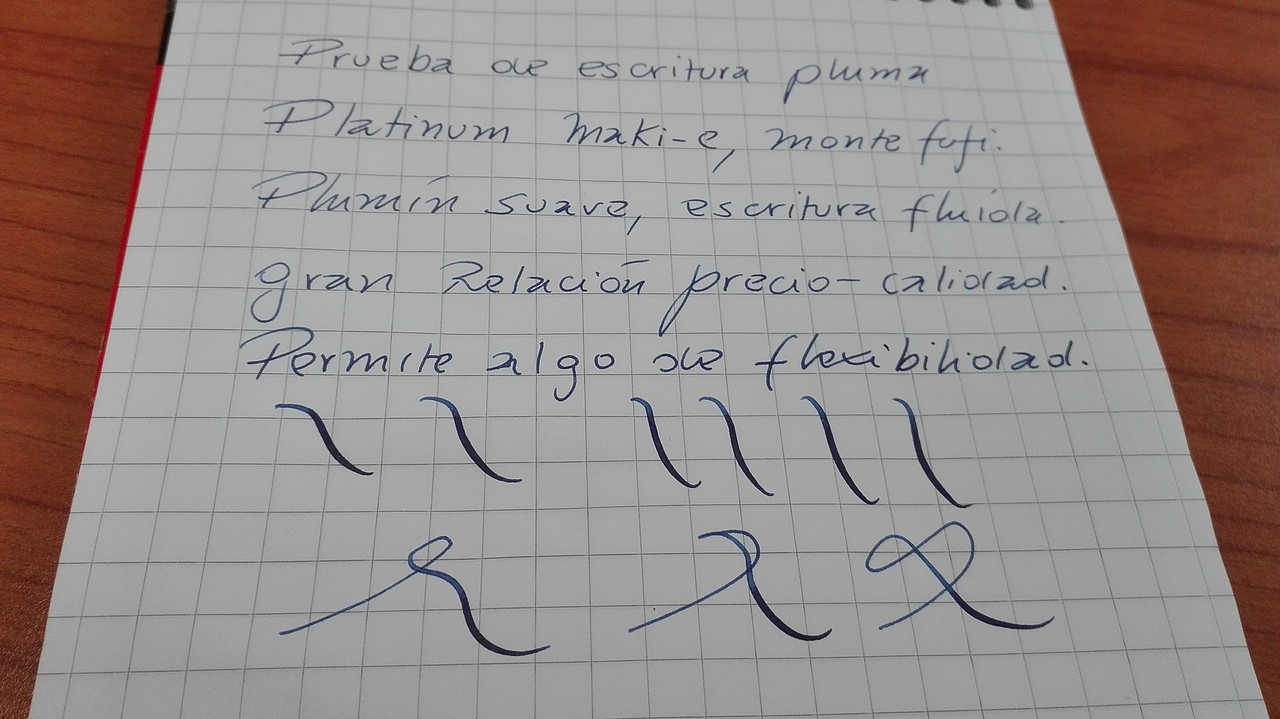 Prueba de escritura pluma
Platinum maki-e, monte fuji.
Plumín suave, escritura fluida.
gran Relación precio-calidad.
Permite algo de flexibilidad.